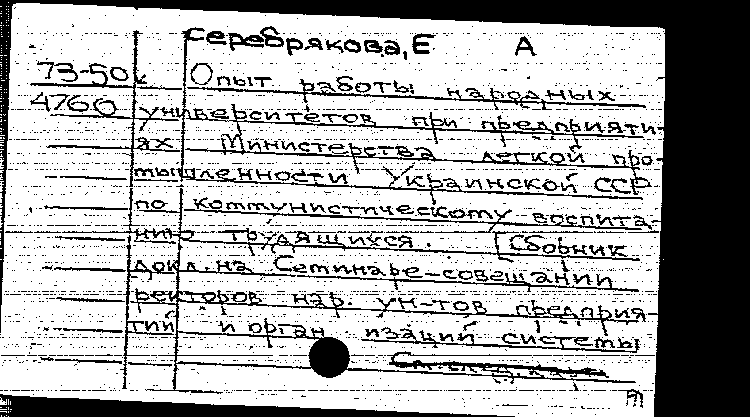 Серебрякова, Е А
73-50 Опыт работы народных
4760 университетов при предприяти-
ях Министерства легкой про-
мышленности Украинской ССР
по коммунистическому воспита-
нию трудящихся. [Сборник
докл. на Семинаре-совещании
ректоров нар. ун-тов предприя-
тий и организаций системы
См. след. карт.